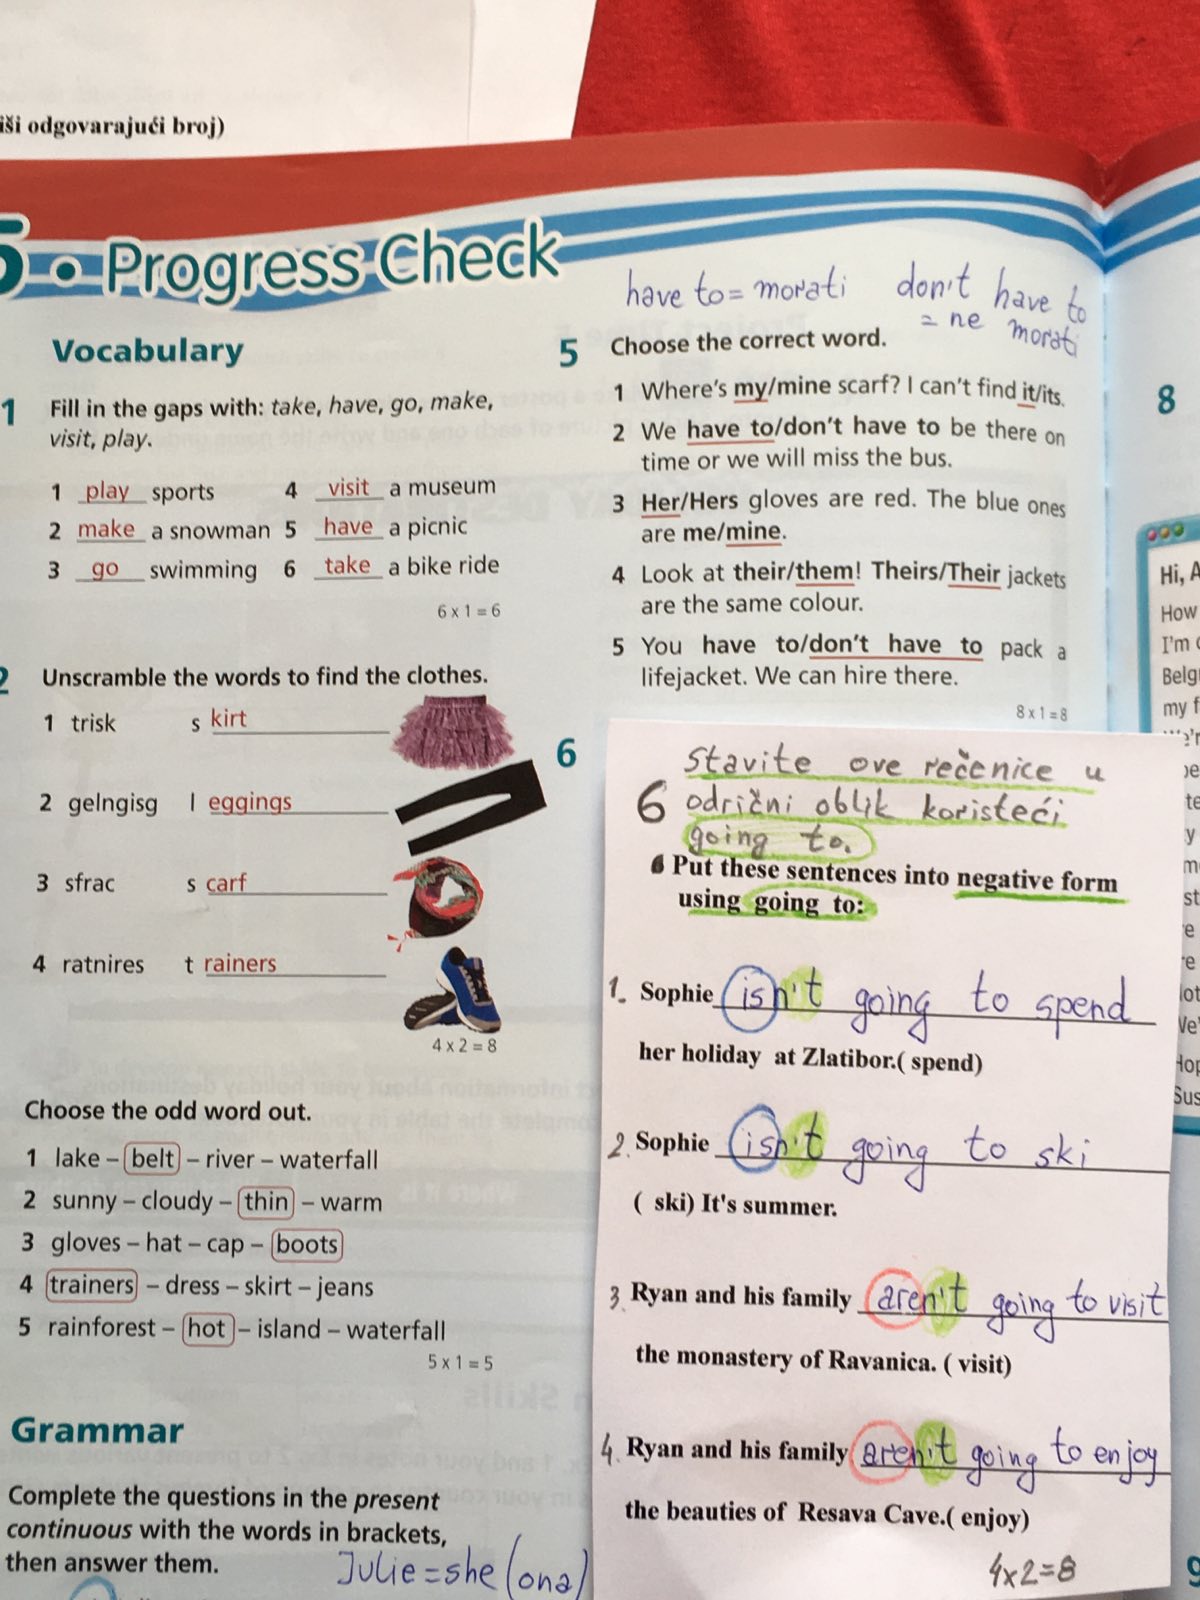 iši odgovarajući broj)
5 • Progress Check
have to = morati don't have to
= ne morati
Vocabulary
1 Fill in the gaps with: take, have, go, make,
visit, play.
1 play sports 4 visit a museum
2 make a snowman 5 have a picnic
3 go swimming 6 take a bike ride
6 x 1 = 6
2 Unscramble the words to find the clothes.
1 trisk s kirt
2 gelngisg l eggings
3 sfrac s carf
4 ratnires t rainers
4 x 2 = 8
Choose the odd word out.
1 lake – belt – river – waterfall
2 sunny – cloudy – thin – warm
3 gloves – hat – cap – boots
4 trainers – dress – skirt – jeans
5 rainforest – hot – island – waterfall
5 x 1 = 5
Grammar
Complete the questions in the present
continuous with the words in brackets,
then answer them.
Julie = she (ona)
5 Choose the correct word.
1 Where's my/mine scarf? I can't find it/its.
2 We have to/don't have to be there on
time or we will miss the bus.
3 Her/Hers gloves are red. The blue ones
are me/mine.
4 Look at their/them! Theirs/Their jackets
are the same colour.
5 You have to/don't have to pack a
lifejacket. We can hire there.
8 x 1 = 8
6
Stavite ove rečenice u
6 odrični oblik koristeći
going to.
6 Put these sentences into negative form
using going to:
1. Sophie isn't going to spend
her holiday at Zlatibor.( spend)
2. Sophie isn't going to ski
( ski) It's summer.
3. Ryan and his family aren't going to visit
the monastery of Ravanica. ( visit)
4. Ryan and his family aren't going to enjoy
the beauties of Resava Cave.( enjoy)
4x2=8
8
Hi, A
How
I'm
Belg
my f
9